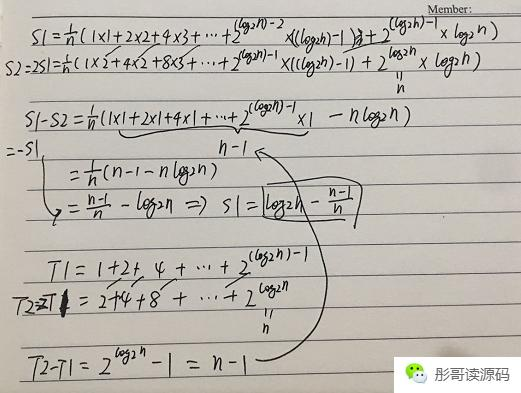 Member:
S1=1/n(1×1+2×2+4×3+…+2^((log2n)-2)×((log2n)-1)+2^((log2n)-1)×log2n)
S2=2S1=1/n(1×2+4×2+8×3+…+2^((log2n)-1)×((log2n)-1)+2^(log2n)×log2n)
=
n
S1-S2=1/n(1×1+2×1+4×1+…+2^((log2n)-1)×1-nlog2n)
=-S1
n-1
=1/n(n-1-nlog2n)
=(n-1)/n-log2n⇒S1=log2n-(n-1)/n
T1=1+2+4+…+2^((log2n)-1)
T2=2T1=2+4+8+…+2^(log2n)
=
n
T2-T1=2^(log2n)-1=n-1
彤哥读源码